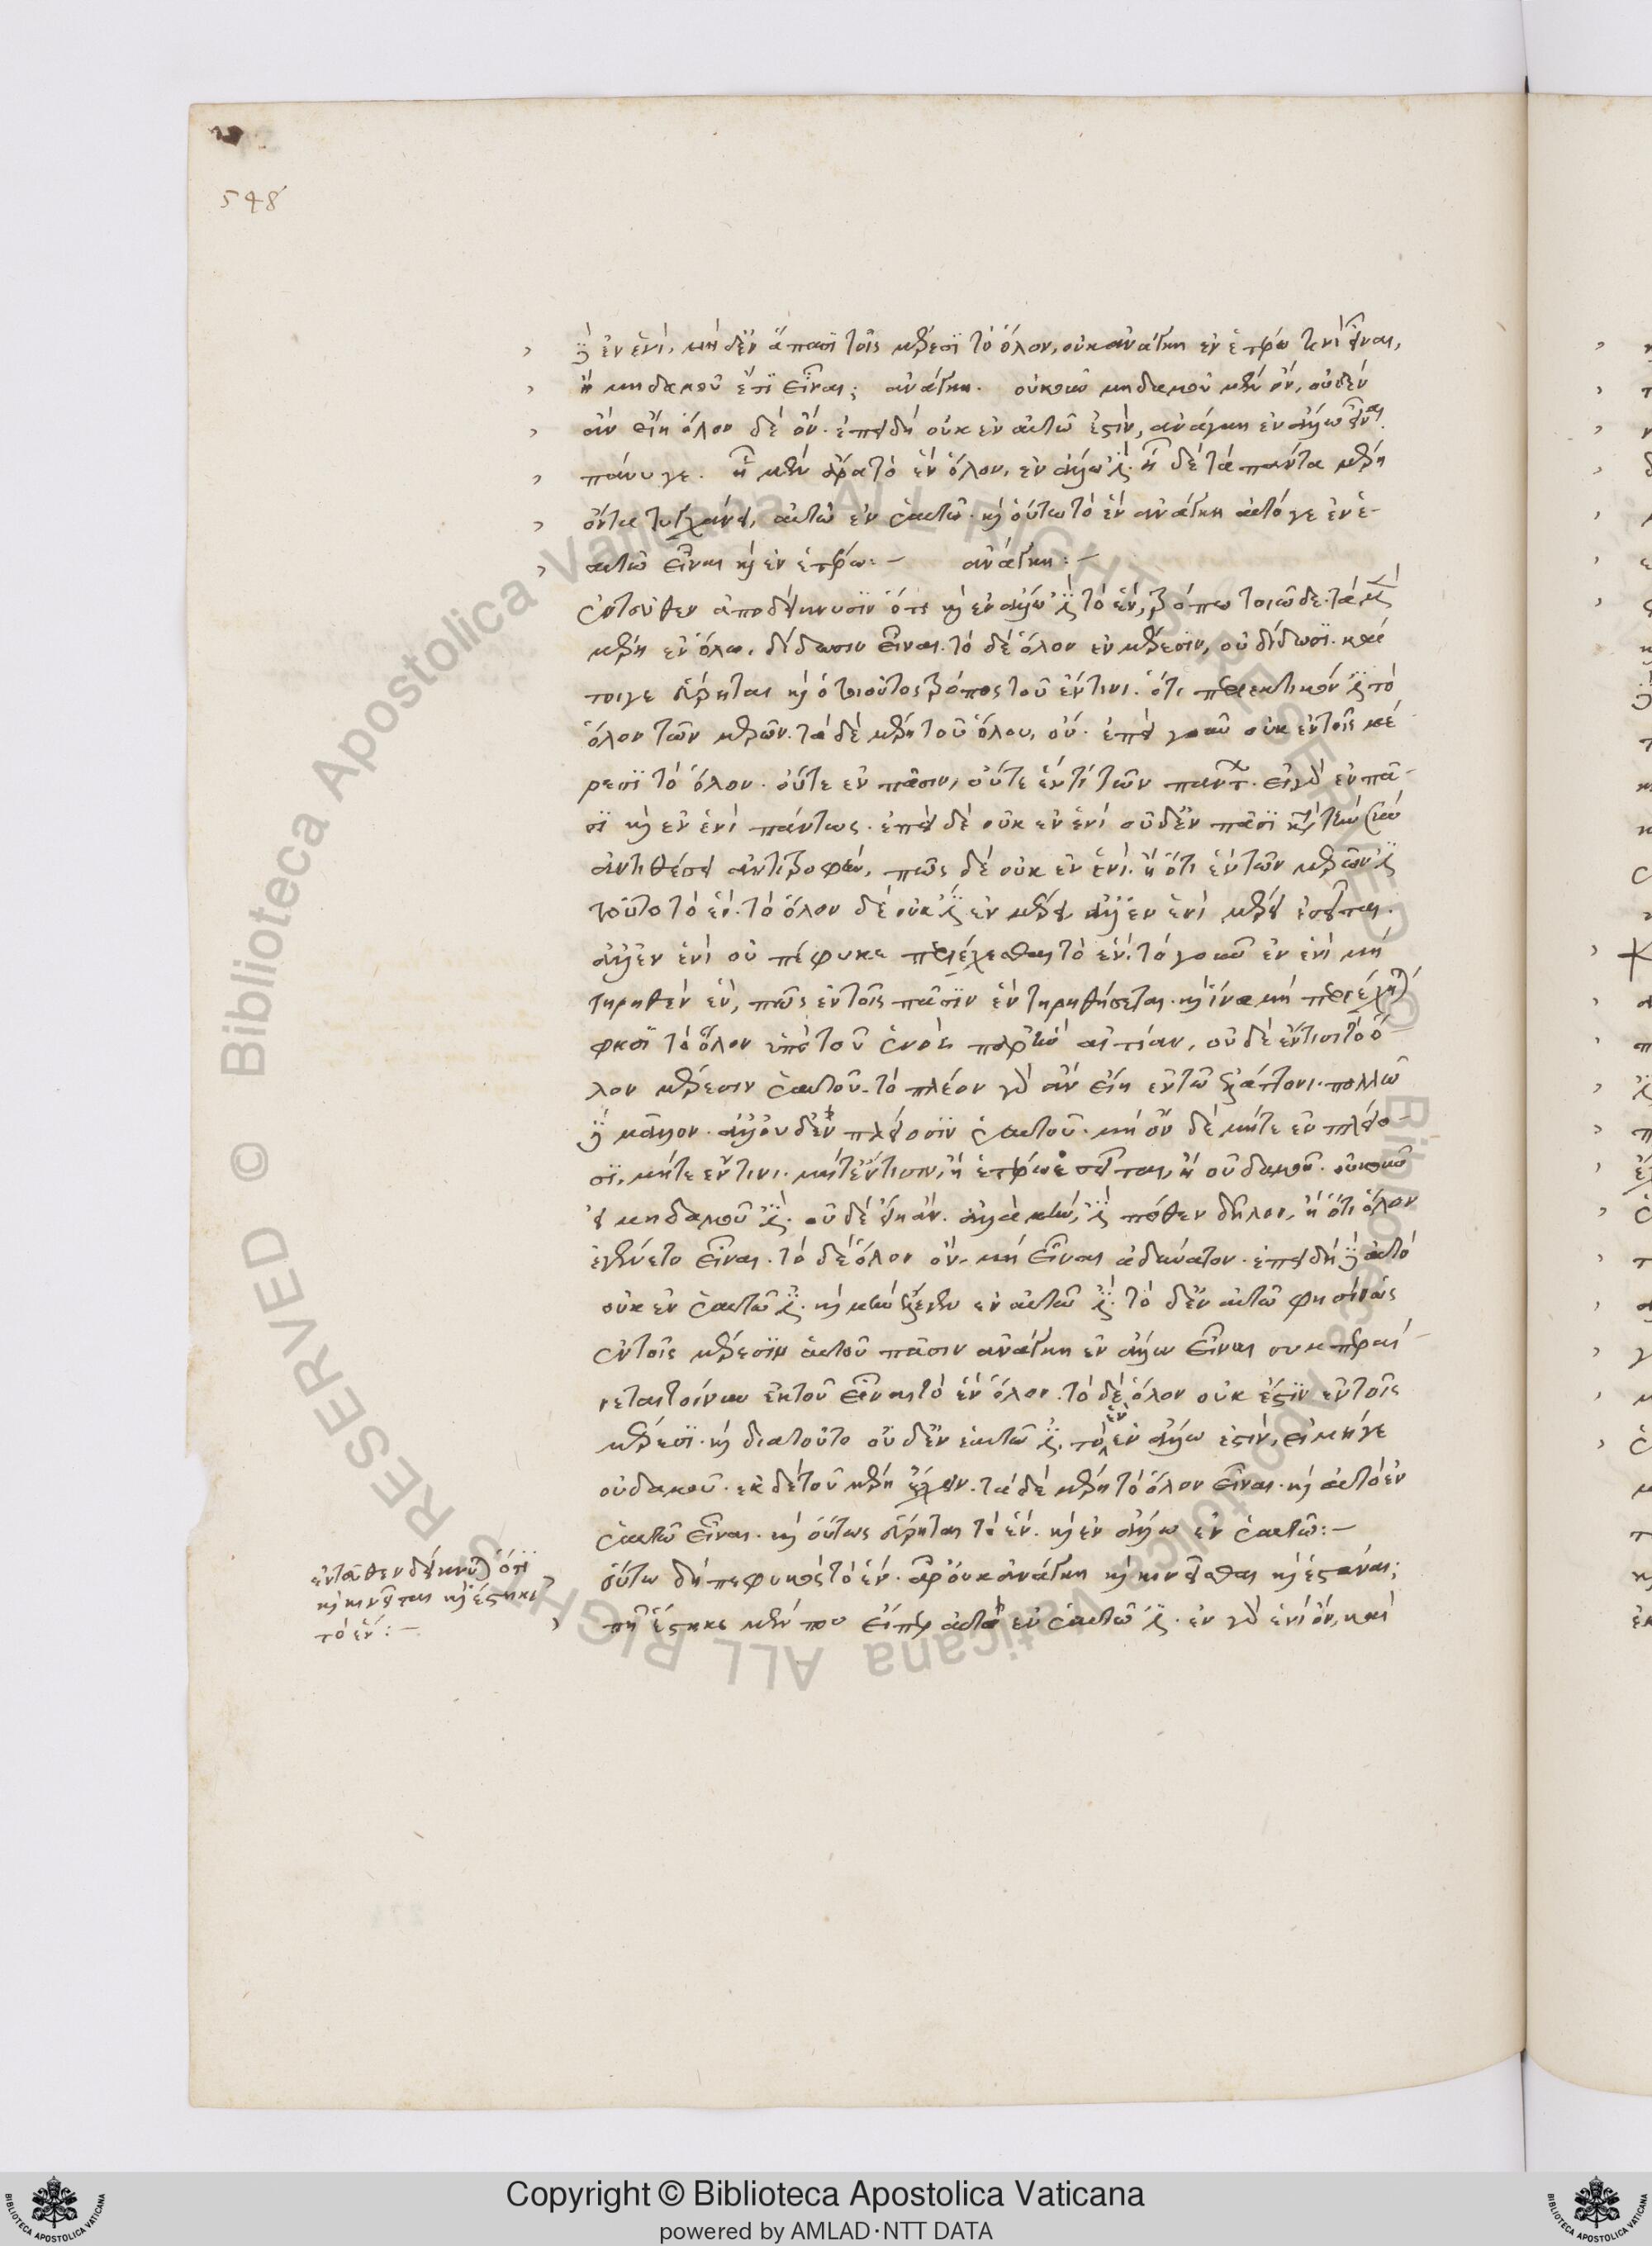 548
ἢ ἐν ἑνί, μὴ δ' ἐν ἅπασι τοῖς μέρεσι τὸ ὅλον, οὐκ ἀνάγκη ἐν ἑτέρω τινὶ εἶναι,
ἢ μηδαμοῦ ἔτι εἶναι; ἀνάγκη. οὐκοῦν μηδαμοῦ μὲν ὄν, οὐδὲν
ἂν εἴη ὅλον δὲ ὄν. ἐπειδὴ οὐκ ἐν αὐτῶ ἐστὶν, ἀνάγκη ἐν ἄλλω εἶναι.
πάνυ γε. ἧ μὲν ἄρα τὸ ἓν ὅλον, ἐν ἄλλω ἐστί. ἧ δὲ τὰ πάντα μέρη
ὄντα τυγχάνει, αὐτὸ ἐν ἑαυτῶ. καὶ οὕτω τὸ ἓν ἀνάγκη αὐτό γε ἐν ἑ-
αυτῶ εἶναι καὶ ἐν ἑτέρω:– ἀνάγκη:–
ἐντεῦθεν ἀποδείκνυσιν ὅτι καὶ ἐν ἄλλω ἐστὶ τὸ ἕν, τρόπω τοιῶδε. τὰ μὲν
μέρη ἐν ὅλω, δίδωσιν εἶναι. τὸ δὲ ὅλον ἐν μέρεσιν, οὐ δίδωσι. καί
τοιγε εἴρηται καὶ ὁ τοιοῦτος τρόπος τοῦ ἔν τινι. ὅτι περιεκτικόν ἐστι τὸ
ὅλον τῶν μερῶν. τὰ δὲ μέρη τοῦ ὅλου, οὔ. ἐπεὶ γοῦν οὐκ ἐν τοῖς μέ-
ρεσι τὸ ὅλον. οὔτε ἐν πᾶσιν, οὔτε ἕν τι τῶν πάντων. εἰ γὰρ ἐν πᾶ-
σι καὶ ἐν ἑνὶ πάντως. ἐπεὶ δὲ οὐκ ἐν ἑνὶ οὐδ' ἐν πᾶσι κατὰ τὴν σὺν
ἀντιθέσει ἀντιστροφήν, πῶς δὲ οὐκ ἐν ἑνί. ἢ ὅτι ἓν τῶν μερῶν ἐστι
τοῦτο τὸ ἕν. τὸ ὅλον δὲ οὐκ ἔστιν ἐν μέρει, ἀλλ' ἐν ἑνὶ μέρει ἔσεῖται.
ἀλλ' ἐν ἑνὶ οὐ πέφυκε περιέχεσθαι τὸ ἕν. τὸ γοῦν ἐν ἑνὶ μὴ
τηρηθὲν ἕν, πῶς ἐν τοῖς πᾶσιν ἓν τηρηθήσεται. καὶ ἵνα μὴ περιέχηται
φησὶ τὸ ὅλον ὑπὸ τοῦ ἑνὸς παρ' ἣν αἰτίαν, οὐδὲ ἔν τισι τὸ ὅ-
λον μέρεσιν ἑαυτοῦ. τὸ πλέον γὰρ ἂν εἴη ἐν τῶ ἐλάττονι. πολλῶ
ἢ μᾶλλον. ἀλλ' οὐδ' ἐν πλείοσιν ἑαυτοῦ. μὴ ὂν δὲ μήτε ἐν πλείο-
σι, μήτε ἔν τινι. μήτ' ἔν τισιν, ἢ ἑτέρω ἐσεῖται, ἢ οὐδαμοῦ. οὐκοῦν
εἰ μηδαμοῦ ἐστί. οὐδὲ εἴη ἄν. ἀλλὰ μὴν, ἐστὶ πόθεν δῆλον, ἢ ὅτι ὅλον
ἐγένετο εἶναι. τὸ δὲ ὅλον ὄν, μὴ εἶναι ἀδύνατον. ἐπειδὴ ἢ αὐτὸ
οὐκ ἐν ἑαυτῶ ἐστί. καὶ μὴν ἔλεγεν ἐν αὐτῶ ἐστί. τὸ δ' ἐν αὐτῶ φησὶν ὡς
ἐν τοῖς μέρεσιν αὐτοῦ πᾶσιν ἀνάγκη ἐν ἄλλω εἶναι συμπεραί-
νεται τοίνυν ἐκ τοῦ εἶναι τὸ ἓν ὅλον. τὸ δὲ ὅλον οὐκ ἔστιν ἐν τοῖς
μέρεσι. καὶ διατοῦτο οὐδ' ἐν ἑαυτῶ ἐστί, τὸ ἓν ἐν ἄλλω ἐστὶν, εἰ μή γε
οὐδαμοῦ. ἐκ δὲ τοῦ μέρη ἔχειν. τὰ δὲ μέρη τὸ ὅλον εἶναι. καὶ αὐτὸ ἐν
ἑαυτῶ εἶναι. καὶ οὕτως εἴρηται τὸ ἕν. καὶ ἐν ἄλλω ἐν ἑαυτῶ:–
οὕτω δὴ πεφυκὸς τὸ ἕν. ἆρ' οὐκ ἀνάγκη καὶ κινεῖσθαι καὶ ἑστάναι;
πῆ ἕστηκε μέν που εἴπερ αὐτὸ ἐν ἑαυτῶ ἐστί. ἐν γὰρ ἑνὶ ὄν, καὶ
ἐνταῦθεν δείκνυται ὅτι
καὶ κινεῖται καὶ ἕστηκε
τὸ ἕν:–
Copyright © Biblioteca Apostolica Vaticana
powered by AMLAD·NTT DATA